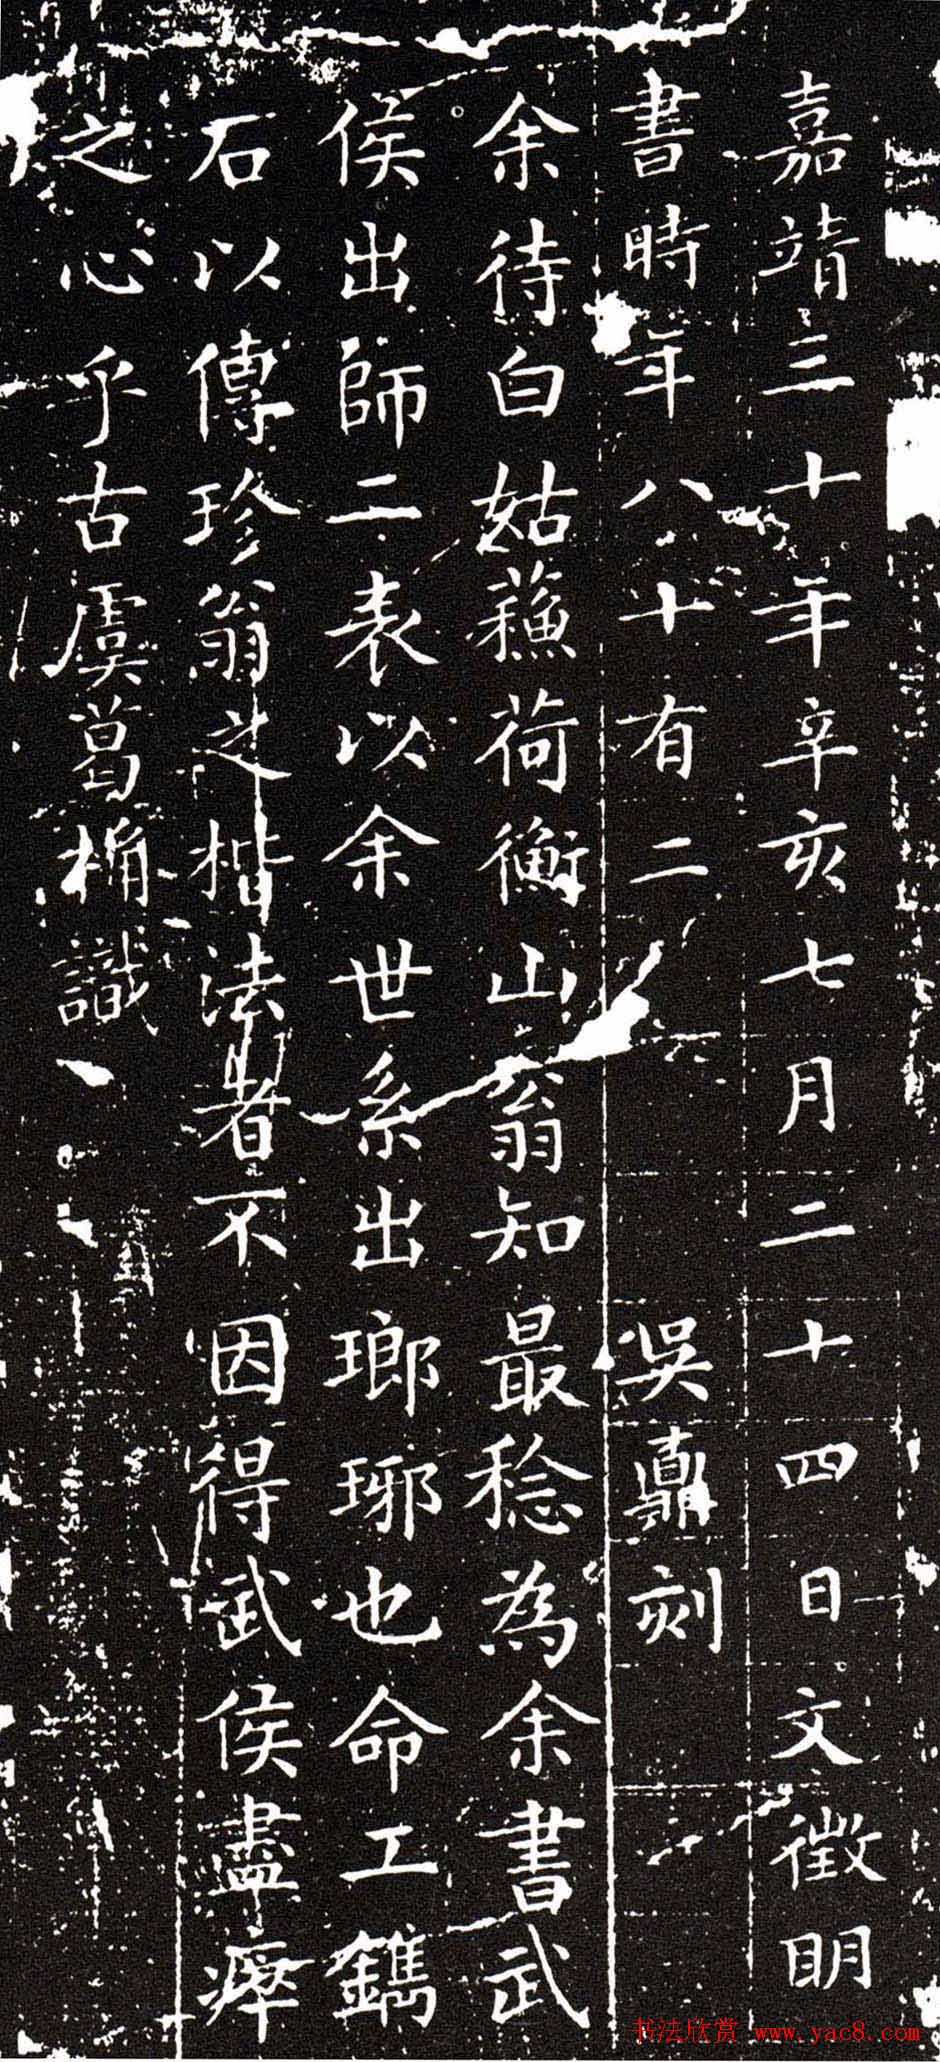 嘉靖三十年辛亥七月二十四日文徵明
書時年八十有二　吳鼒刻
余待白姑蘇荷衡山翁知最稔為余書武
侯出師二表以余世系出瑯琊也命工鐫
石以傳珍翁之楷法者不因得武侯盡瘁
之心乎古虞葛桷識
书法欣赏 www.yac8.com